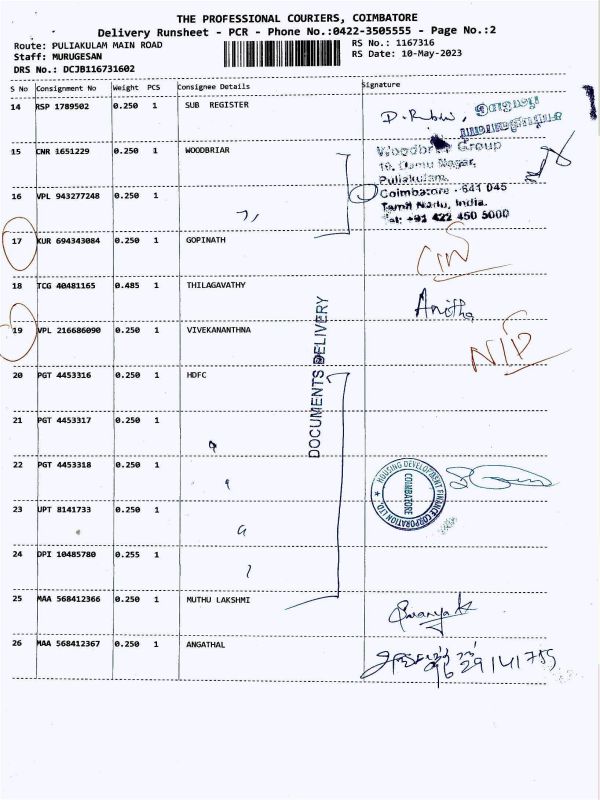 THE PROFESSIONAL COURIERS, COIMBATORE
Delivery Runsheet - PCR - Phone No.:0422-3505555 - Page No.:2
Route: PULIAKULAM MAIN ROAD
RS No.: 1167316
Staff: MURUGESAN
RS Date: 10-May-2023
DRS No.: DCJB116731602
S No Consignment No Weight PCS Consignee Details Signature
14 RSP 1789502 0.250 1 SUB REGISTER
15 CNR 1651229 0.250 1 WOODBRIAR
Woodbriar Group
Puliakulam,
Coimbatore - 641 045
Tamil Nadu, India.
Tel: +91 422 450 5000
16 VPL 943277248 0.250 1
17 KUR 694343084 0.250 1 GOPINATH
18 TCG 40481165 0.485 1 THILAGAVATHY Anitha
19 VPL 216686090 0.250 1 VIVEKANANTHNA
DOCUMENTS DELIVERY
20 PGT 4453316 0.250 1 HDFC
21 PGT 4453317 0.250 1
22 PGT 4453318 0.250 1
HOUSING DEVELOPMENT FINANCE CORPORATION LTD.
COIMBATORE
23 UPT 8141733 0.250 1
24 DPI 10485780 0.255 1
25 MAA 568412366 0.250 1 MUTHU LAKSHMI
26 MAA 568412367 0.250 1 ANGATHAL